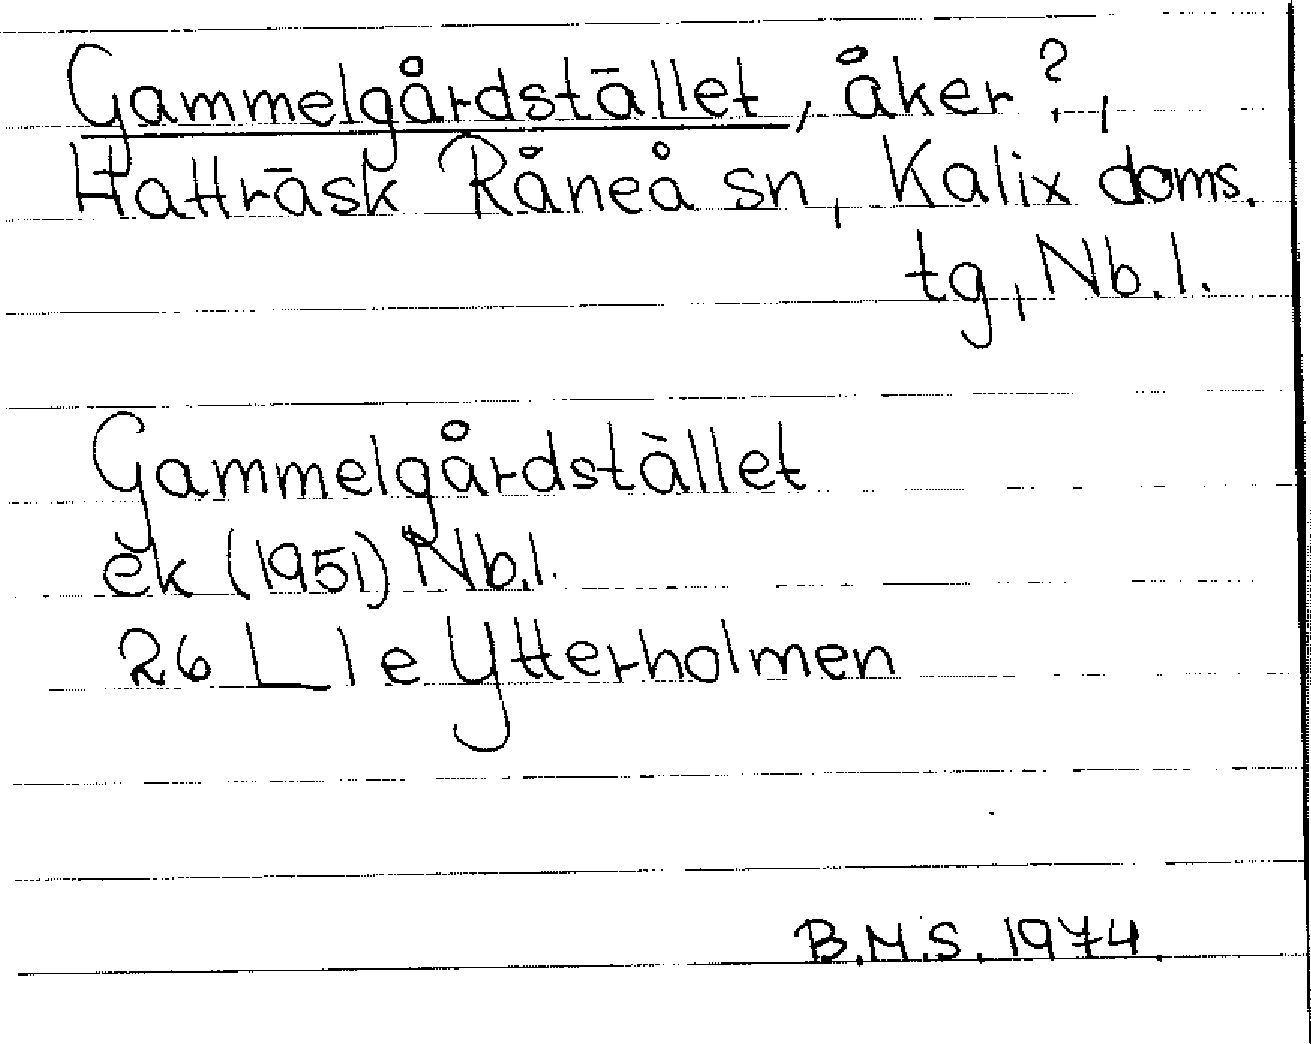 Gammelgårdstället, åker?,
Hatträsk Råneå sn, Kalix doms.
tg, Nb.l.
Gammelgårdstället
ek (1951) Nb.l.
26 L l e Ytterholmen
B.M.S. 1974.